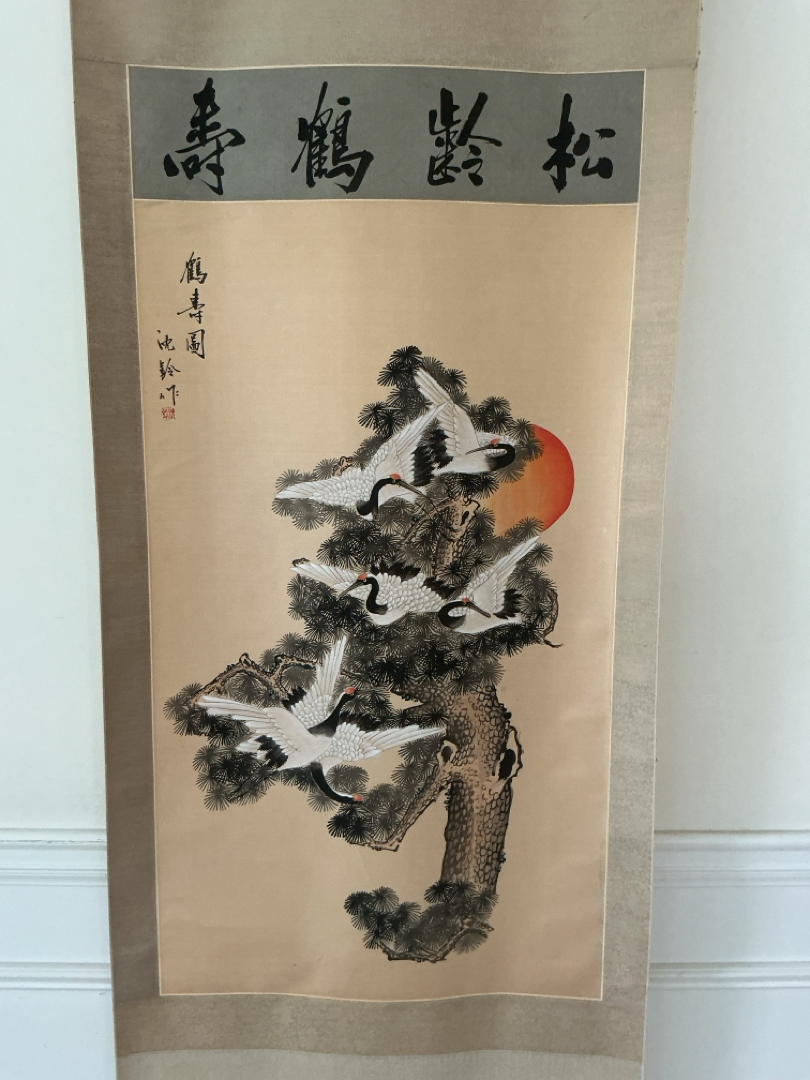 松齡鶴壽
鶴壽圖
沈銓作